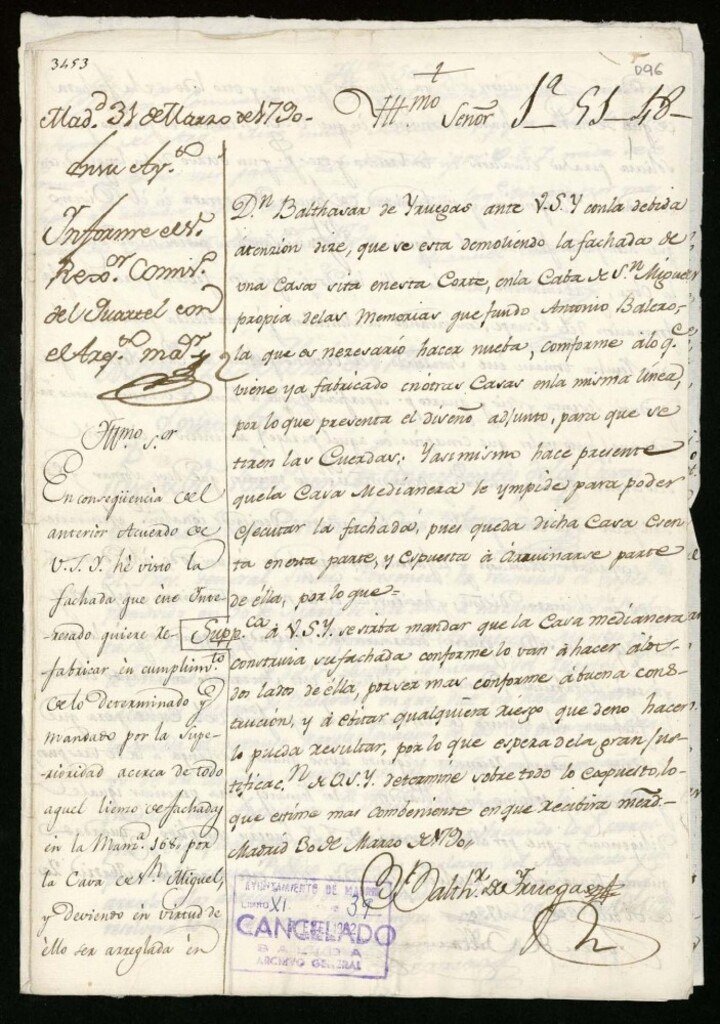 3453
096
†
Mad.d 31 de Marzo de 1790-
Ill.mo Señor
1ª 51-48-
En su Ay.to
Informe el S.r
Rexo.or Comis.o
del Quartel con
el Arq.to ma.or
Ill.mo S.or
En conseqüencia del
anterior Acuerdo de
V.S.Y. hè visto la
fachada que ese Inte-
resado quiere re-
fabricar èn cumplim.to
de lo determinado y
mandado por la Supe-
rioridad acerca de todo
aquel lienzo de fachadas
en la Manz.a 168, por
la Cava de S.n Miguel,
y deviendo èn virtud de
èllo ser arreglada èn
D.n Balthasar de Yruegas ante V.S.Y con la debida
atenzion dize, que se esta demoliendo la fachada de
una Casa sita en esta Corte, en la Caba de S.n Miguel
propia de las Memorias que fundo Antonio Balero-
la que es nezesario hacer nueba, comforme à lo q.e
viene ya fabricado en òtras Casas en la misma linea,
por lo que presenta el diseño adjunto, para que se
tiren las Cuerdas: Y asimismo hace presente
que la Casa Medianera le ympide para poder
ejecutar la fachada, pues queda dicha Casa esen-
ta en esta parte, y espuesta à àrruinarse parte
de ella, por lo que=
Supp.ca à V.S.Y. se sirba mandar que la Casa medianera
construia su fachada conforme lo van à hacer à los
dos lados de ella, por ser mas conforme à buena cons-
trución, y à ebitar qualquiera riesgo que de no hacerlo
pueda resultar, por lo que espera de la gran Jus-
tificac.n de V.S.Y. determine sobre todo lo expuesto, lo-
que estime mas combeniente en que recibira merd.-
Madrid 30 de Marzo de 1790,
Balth.r de Yruegas
AYUNTAMIENTO DE MADRID
LIBRO XI
39
ENE 1982
CANCELADO
SALIDA
ARCHIVO GENERAL